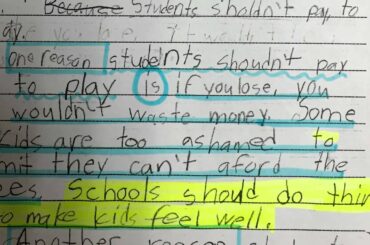 Because Students sholdn't pay to
ay.
one reason students shoudn't pay
to play is if you lose, you
wouldn't waste money. Some
kids are too ashamed to
mit they can't aford the
es. Schools should do thin
o make kids feel well.
Another reason